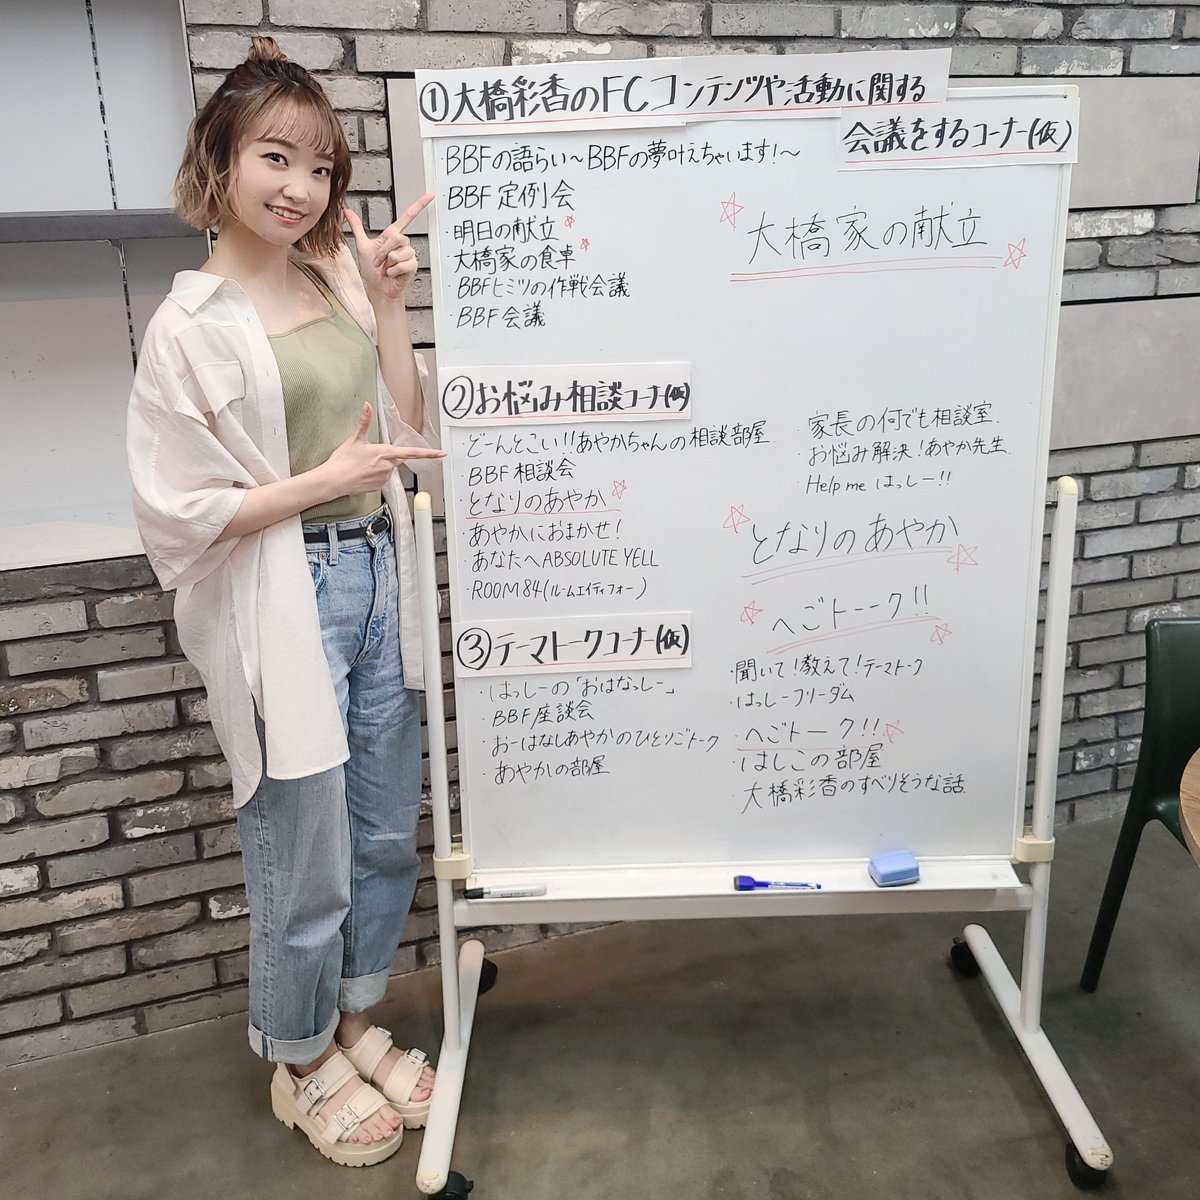 ①大橋彩香のFCコンテンツや活動に関する
会議をするコーナー(仮)
・BBFの語らい～BBFの夢叶えちゃいます!～
・BBF定例会
・明日の献立
・大橋家の食卓
・BBFヒミツの作戦会議
・BBF会議
大橋家の献立
②お悩み相談コーナー(仮)
・どーんとこい!!あやかちゃんの相談部屋
・BBF相談会
・となりのあやか
・あやかにおまかせ!
・あなたへABSOLUTE YELL
・ROOM84(ルームエイティフォー)
・家長の何でも相談室.
・お悩み解決!あやか先生.
・Help me はっしー!!
となりのあやか
③テーマトークコーナー(仮)
・はっしーの「おはなっしー」
・BBF座談会
・おーはなしあやかのひとりごトーク
・あやかの部屋
へごトーーク!!
・聞いて!教えて!テーマトーク
・はっしーフリーダム
・へごトーーク!!
・はしこの部屋
・大橋彩香のすべりそうな話.